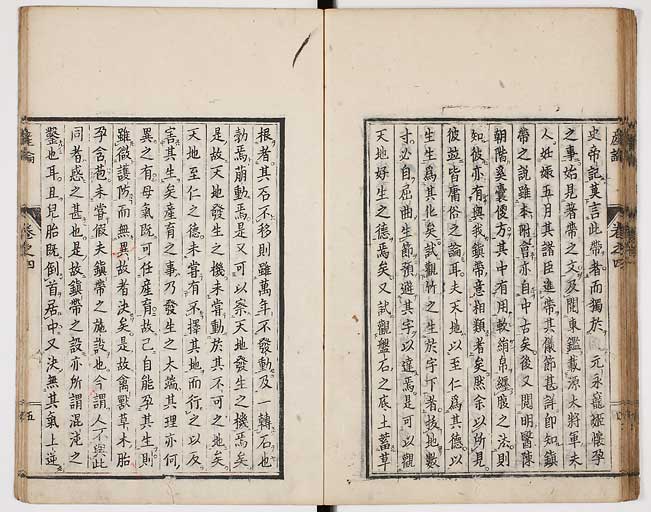 史帝記莫言此帶者而獨於 元永寵羅懷孕
之事始見著帶之文及閱東鑑載源大將軍夫
人妊娠五月其諸臣進帶其儀節甚詳即知鎮
帶之說雖本附會亦自中古矣後又閱明醫陳
朝階奚囊便方其中有用軟絹帛纏腹之法則
知彼亦有與我鎮帶意相類者矣然余以所見
彼並皆庸俗之論耳夫天地以至仁爲其德以
生生爲其化矣試觀竹之生於宇下者拔地數
寸必自屈曲生節預避其宇以達焉是可以觀
天地好生之德焉矣又試觀盤石之底土蓄草
根者其石不移則雖萬年不發動及一轉石也
勃焉萠動焉是又可以察天地發生之機焉矣
是故天地發生之機未嘗動於其不可之地矣
天地至仁之德未嘗有不擇其地而行之以及
害其生矣產育之事乃發生之大端其理亦何
異之有母氣既可任產育故己自能孕其生則
雖微護防而無異故者決矣是故禽獸草木胎
孕含苞未嘗假夫鎮帶之施設也今謂人不與此
同者惑之甚也是故鎮帶之設亦所謂混沌之
鑿也耳且兒胎既倒首居中又決無其氣上逆
產論
卷之四
五